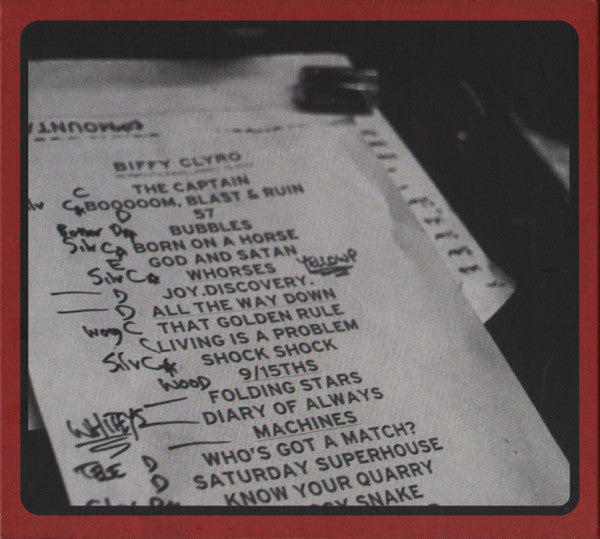 BIFFY CLYRO
C THE CAPTAIN
C# BOOOOOM, BLAST & RUIN
D 57
BUBBLES
Silv C# BORN ON A HORSE
E GOD AND SATAN
Silv C# WHORSES YELLOW P
D JOY.DISCOVERY.
D ALL THE WAY DOWN
C THAT GOLDEN RULE
C LIVING IS A PROBLEM
Silv C# SHOCK SHOCK
WOOD 9/15THS
FOLDING STARS
WHITEYS DIARY OF ALWAYS
MACHINES
D WHO'S GOT A MATCH?
D SATURDAY SUPERHOUSE
KNOW YOUR QUARRY
SNAKE